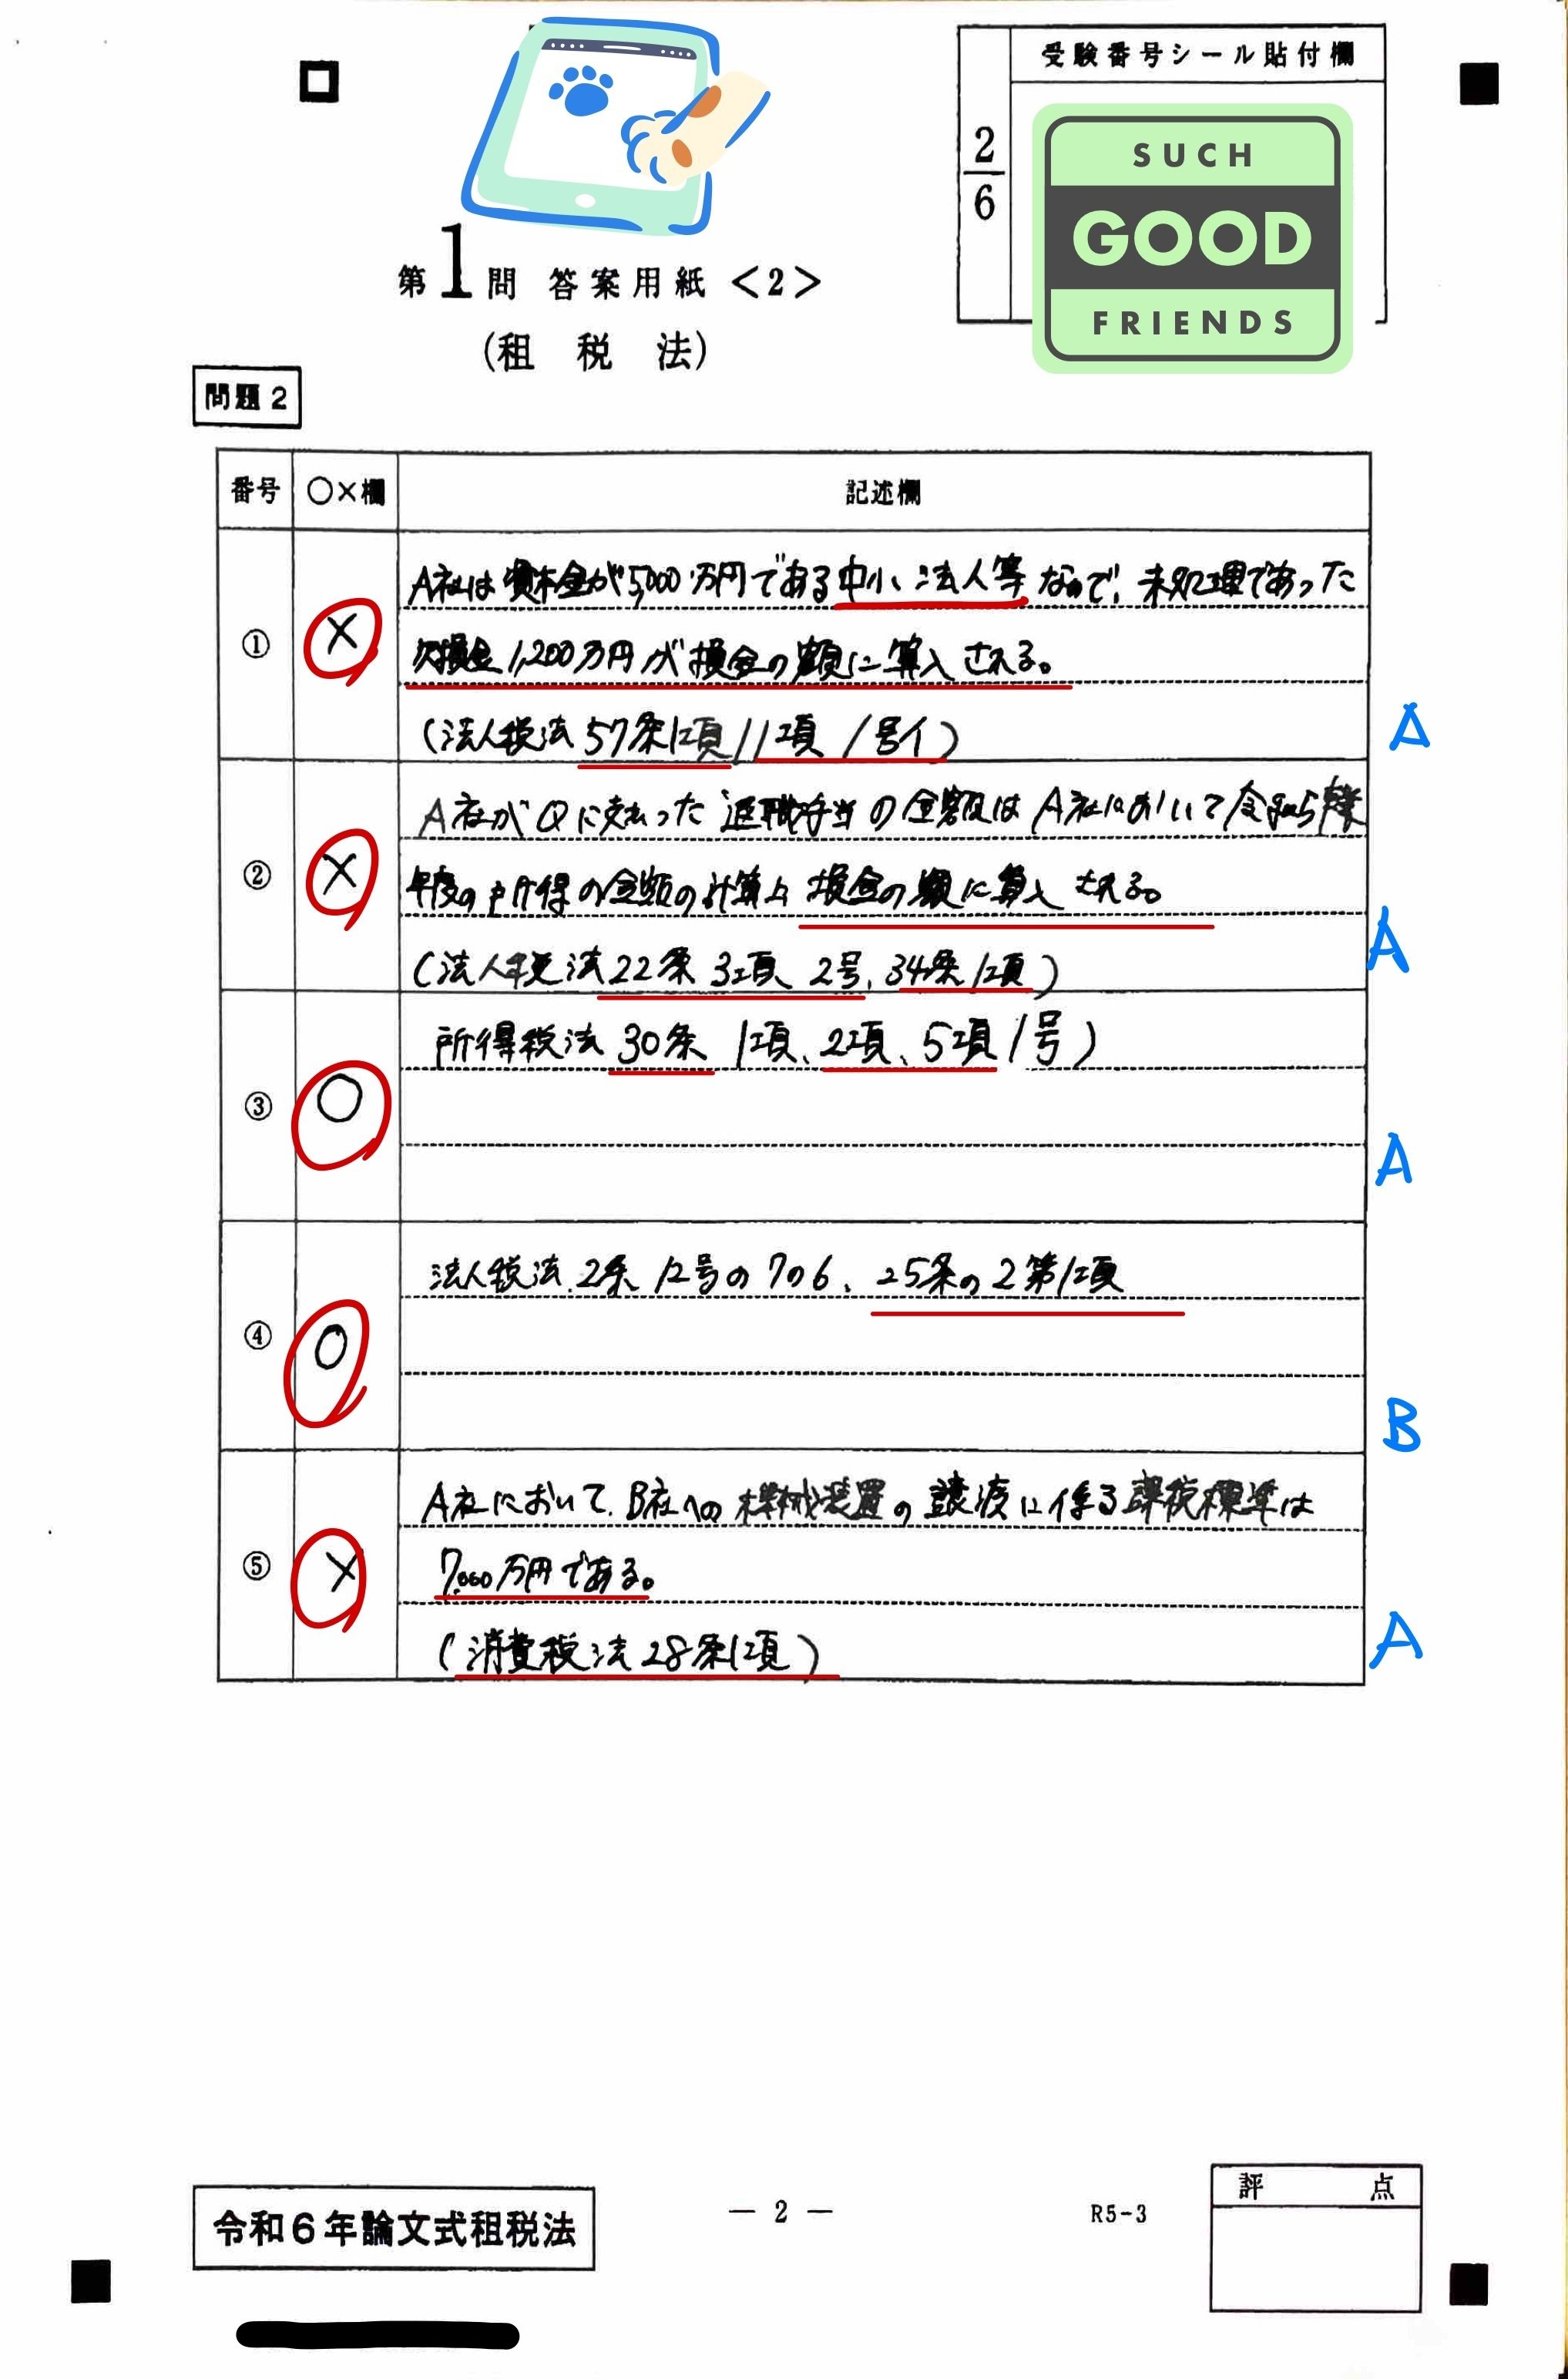 受験番号シール貼付欄
2/6
SUCH
GOOD
FRIENDS
第1問 答案用紙<2>
(租税法)
問題2
番号 ○×欄 記述欄
① ×
A社は資本金が5,000万円である中小法人等なので、未処理であった
欠損金1,200万円が損金の額に算入される。
(法人税法57条1項、11項1号イ)
A
② ×
A社がQに支払った退職手当の金額はA社において令和5事業
年度の所得の金額の計算上損金の額に算入される。
(法人税法22条3項2号、34条1項)
A
③ ○
所得税法30条1項、2項、5項1号)
A
④ ○
法人税法2条12号の7の6、25条の2第1項
B
⑤ ×
A社において、B社への機械装置の譲渡に係る課税標準は
7,000万円である。
(消費税法28条1項)
A
令和6年論文式租税法
— 2 —
R5-3
評点